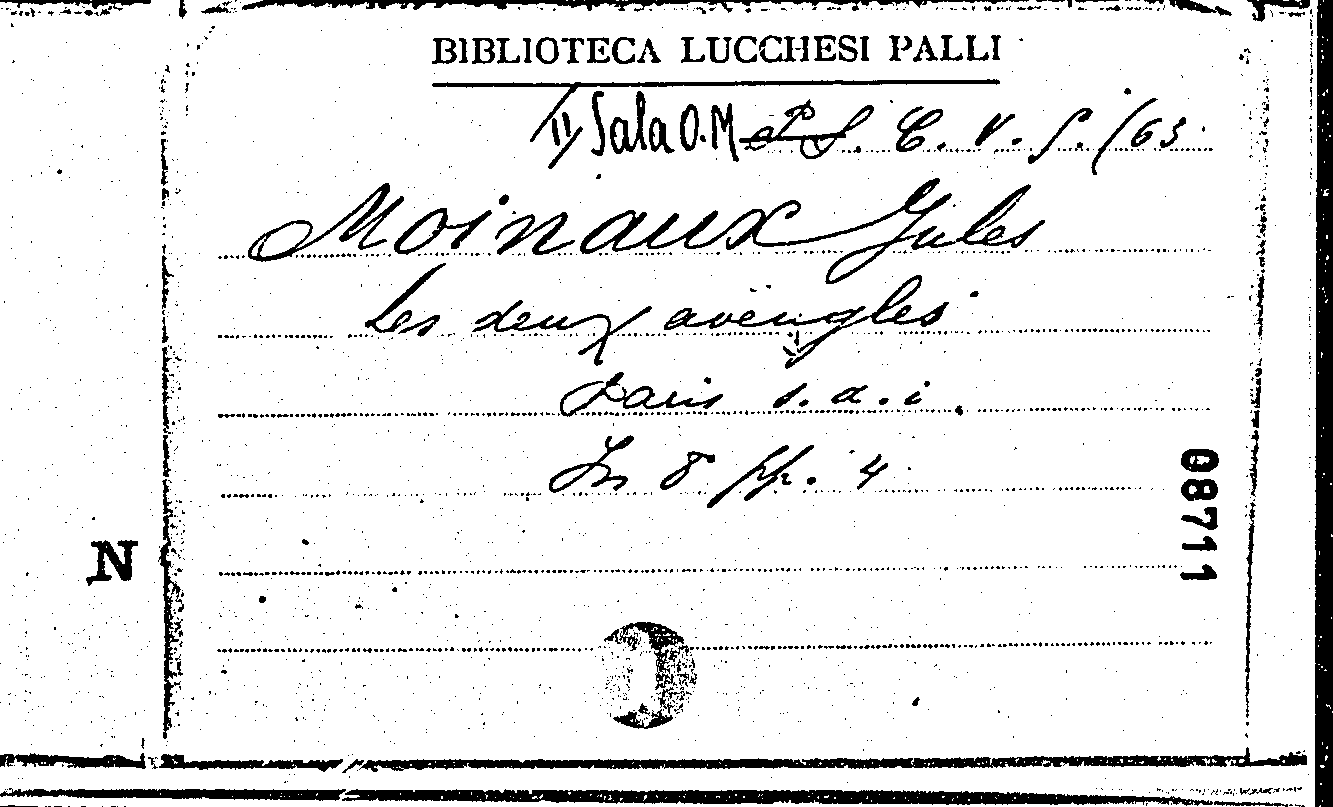 BIBLIOTECA LUCCHESI PALLI
II Sala O.M. C. V. S. (63
Moinaux Jules
Les deux aveugles
Paris s.a.i.
In 8 pp. 4
08711
N